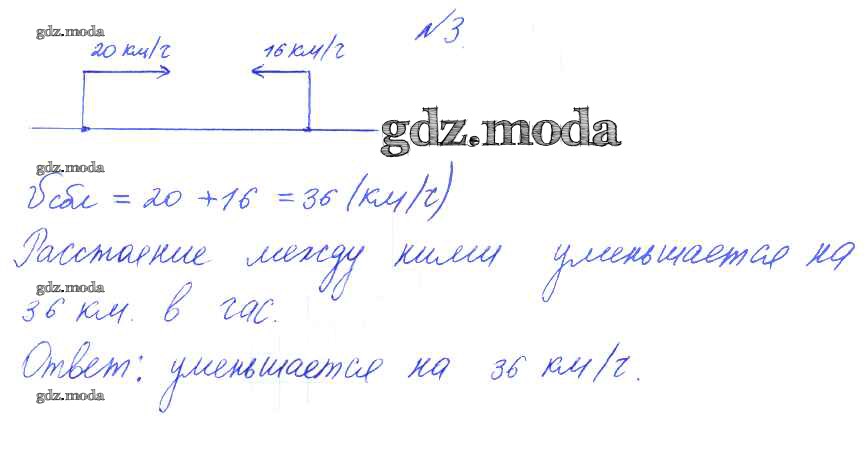 gdz.moda
№3.
20 км/ч 16 км/ч
gdz.moda
gdz.moda
Vсбл = 20 + 16 = 36 (км/ч)
Расстояние между ними уменьшается на
gdz.moda
36 км. в час.
Ответ: уменьшается на 36 км/ч.
gdz.moda